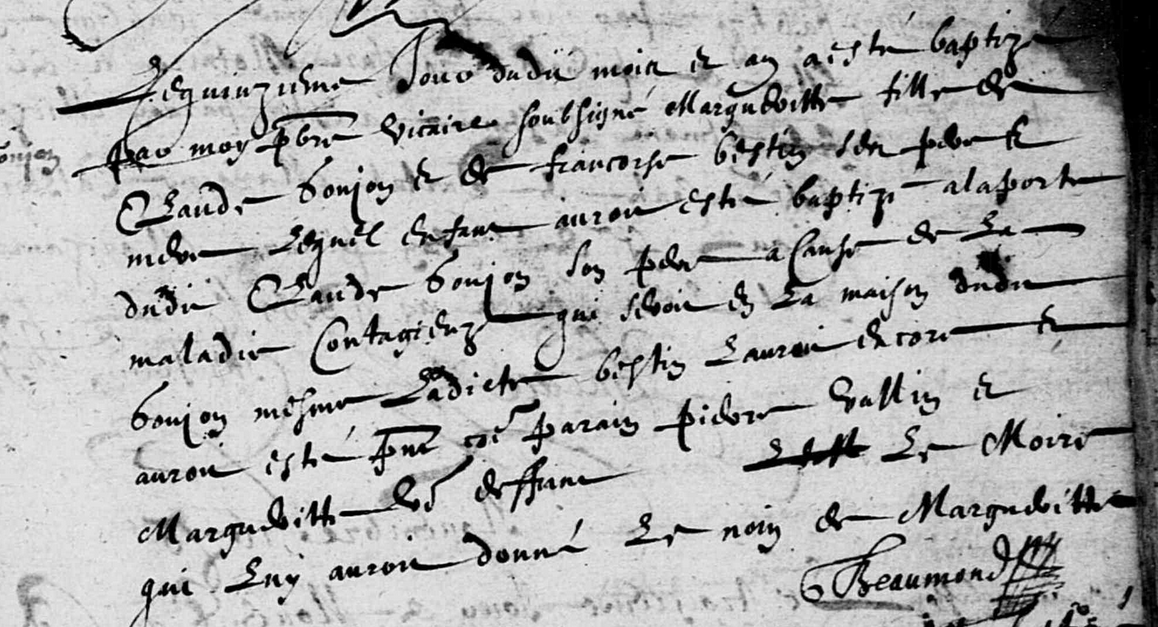 Le quinziesme Jour dudit mois et an a esté baptizé
par moy pbre vicaire soubsigné Margueritte fille de
Claude Soujon et de francoise bestin ses pere et
mere Lequel enfant auroit esté baptizé a la porte
dudit Claude Soujon son pere a Cause de La
maladie Contagieuze qui seroit en La maison dudit
Soujon mesme Ladicte bestin Lauroit encore et
auroit esté pnt coe parain pierre vallin et
Margueritte ve deffunt Le Moire
qui Luy auroit donné Le nom de Margueritte
Beaumond